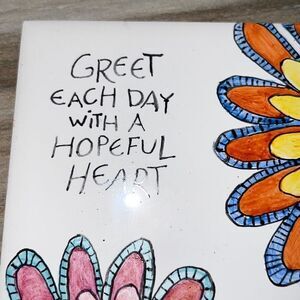 GREET
EACH DAY
WiTH A
HOPEFUL
HEART